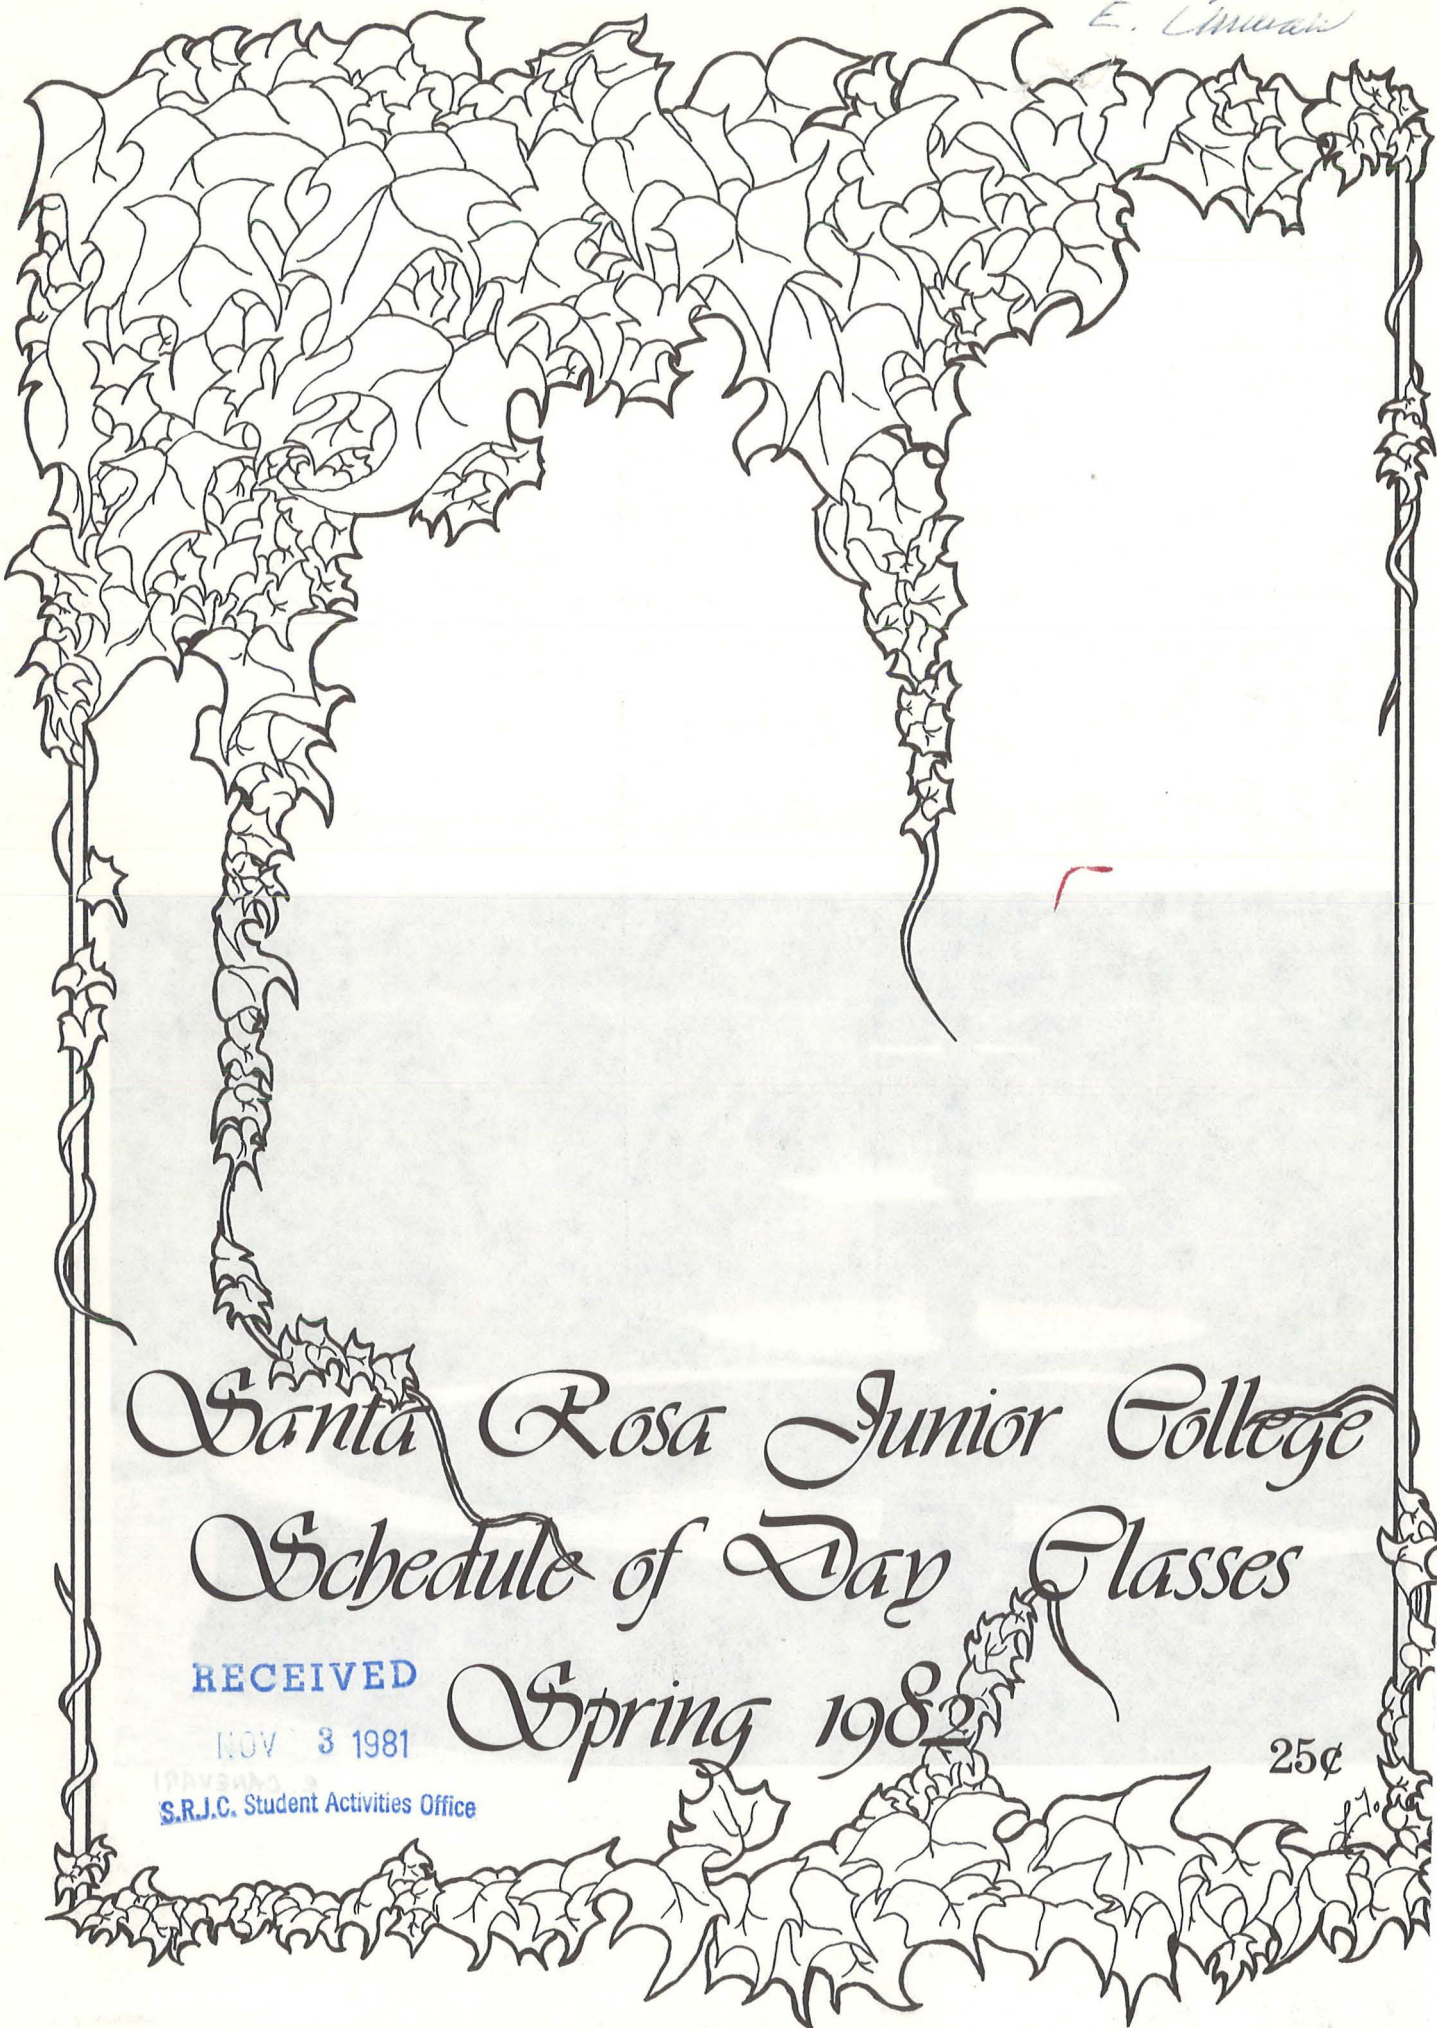 E.
Santa Rosa Junior College
Schedule of Day Classes
Spring 1982
25¢
RECEIVED
NOV 3 1981
S.R.J.C. Student Activities Office